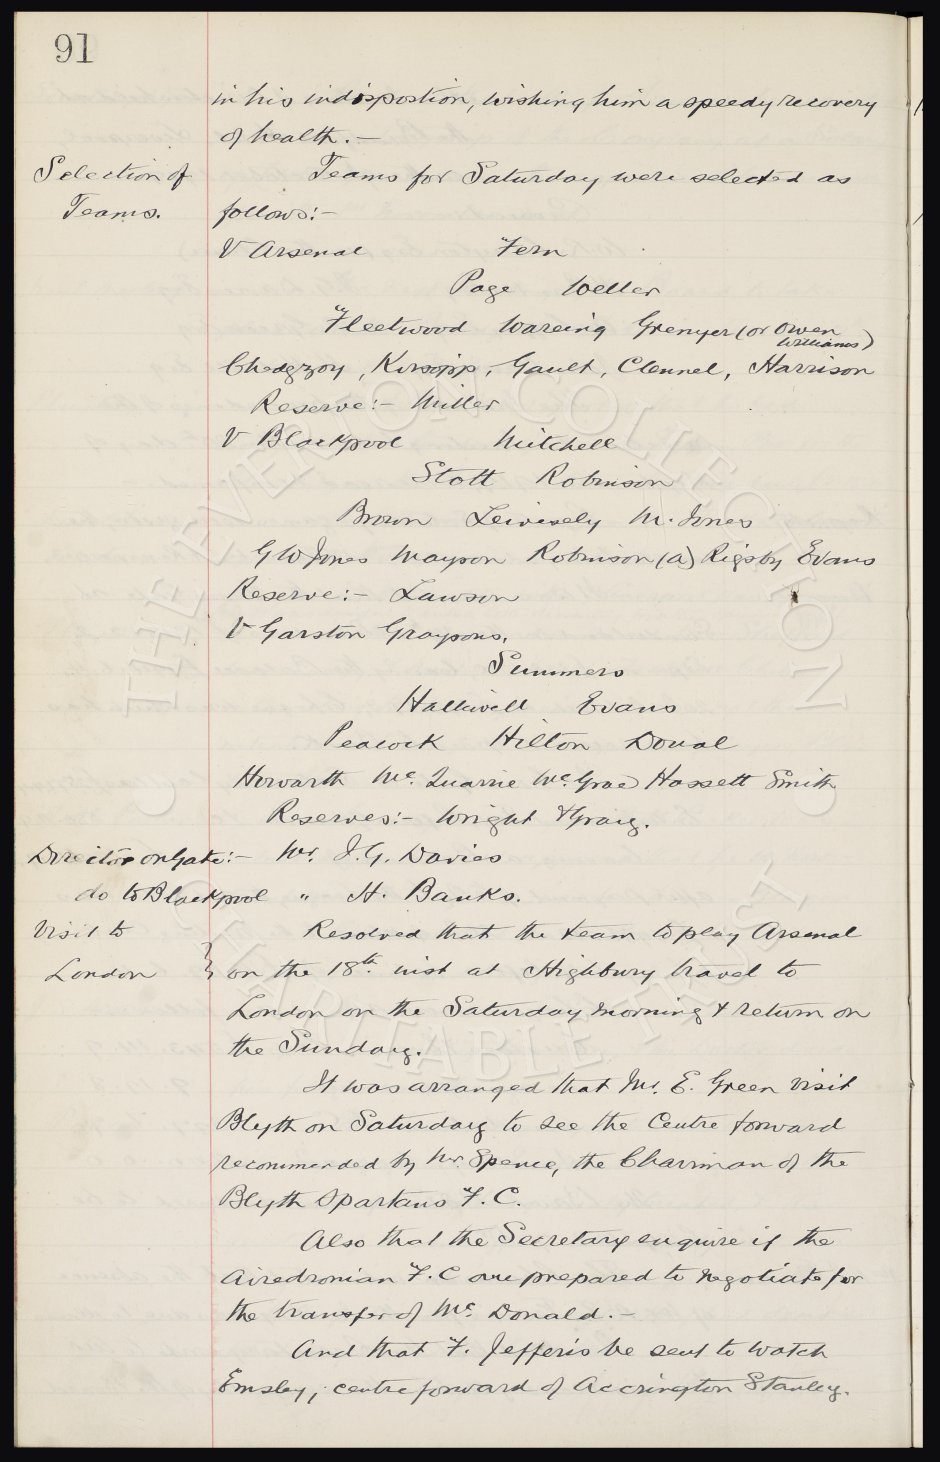 91
in his indispostion, wishing him a speedy recovery
of health. —
Selection of Teams for Saturday were selected as
Teams. follows:—
V Arsenal Fern
Page Weller
Fleetwood Wareing Grenyer (or Owen
Williams)
Chedgzoy, Kirsopp, Gault, Clennel, Harrison
Reserve:— Miller
V Blackpool Mitchell
Stott Robinson
Brown Leivesely M. Jones
G W Jones Mayson Robinson (A) Rigsby Evans
Reserve:— Lawson
V Garston Graysons.
Summers
Halliwell Evans
Peacock Hilton Doual
Howarth Mc. Quarrie Mc. Grae Hassett Smith
Reserves:— Wright & Graig.
Director on Gate:— Mr. J. G. Davies
do to Blackpool " H. Banks.
Visit to Resolved that the team to play Arsenal
London } on the 18th. inst at Highbury travel to
London on the Saturday morning & return on
the Sunday.
It was arranged that Mr. E. Green visit
Blyth on Saturday to see the Centre forward
recommended by Mr. Spence, the Chairman of the
Blyth Spartans F. C.
Also that the Secretary enquire if the
Airedronian F. C are prepared to negotiate for
the transfer of Mc. Donald. —
And that F. Jefferis be sent to watch
Emsley, centre forward of Accrington Stanley.
THE EVERTON COLLECTION
CHARITABLE TRUST